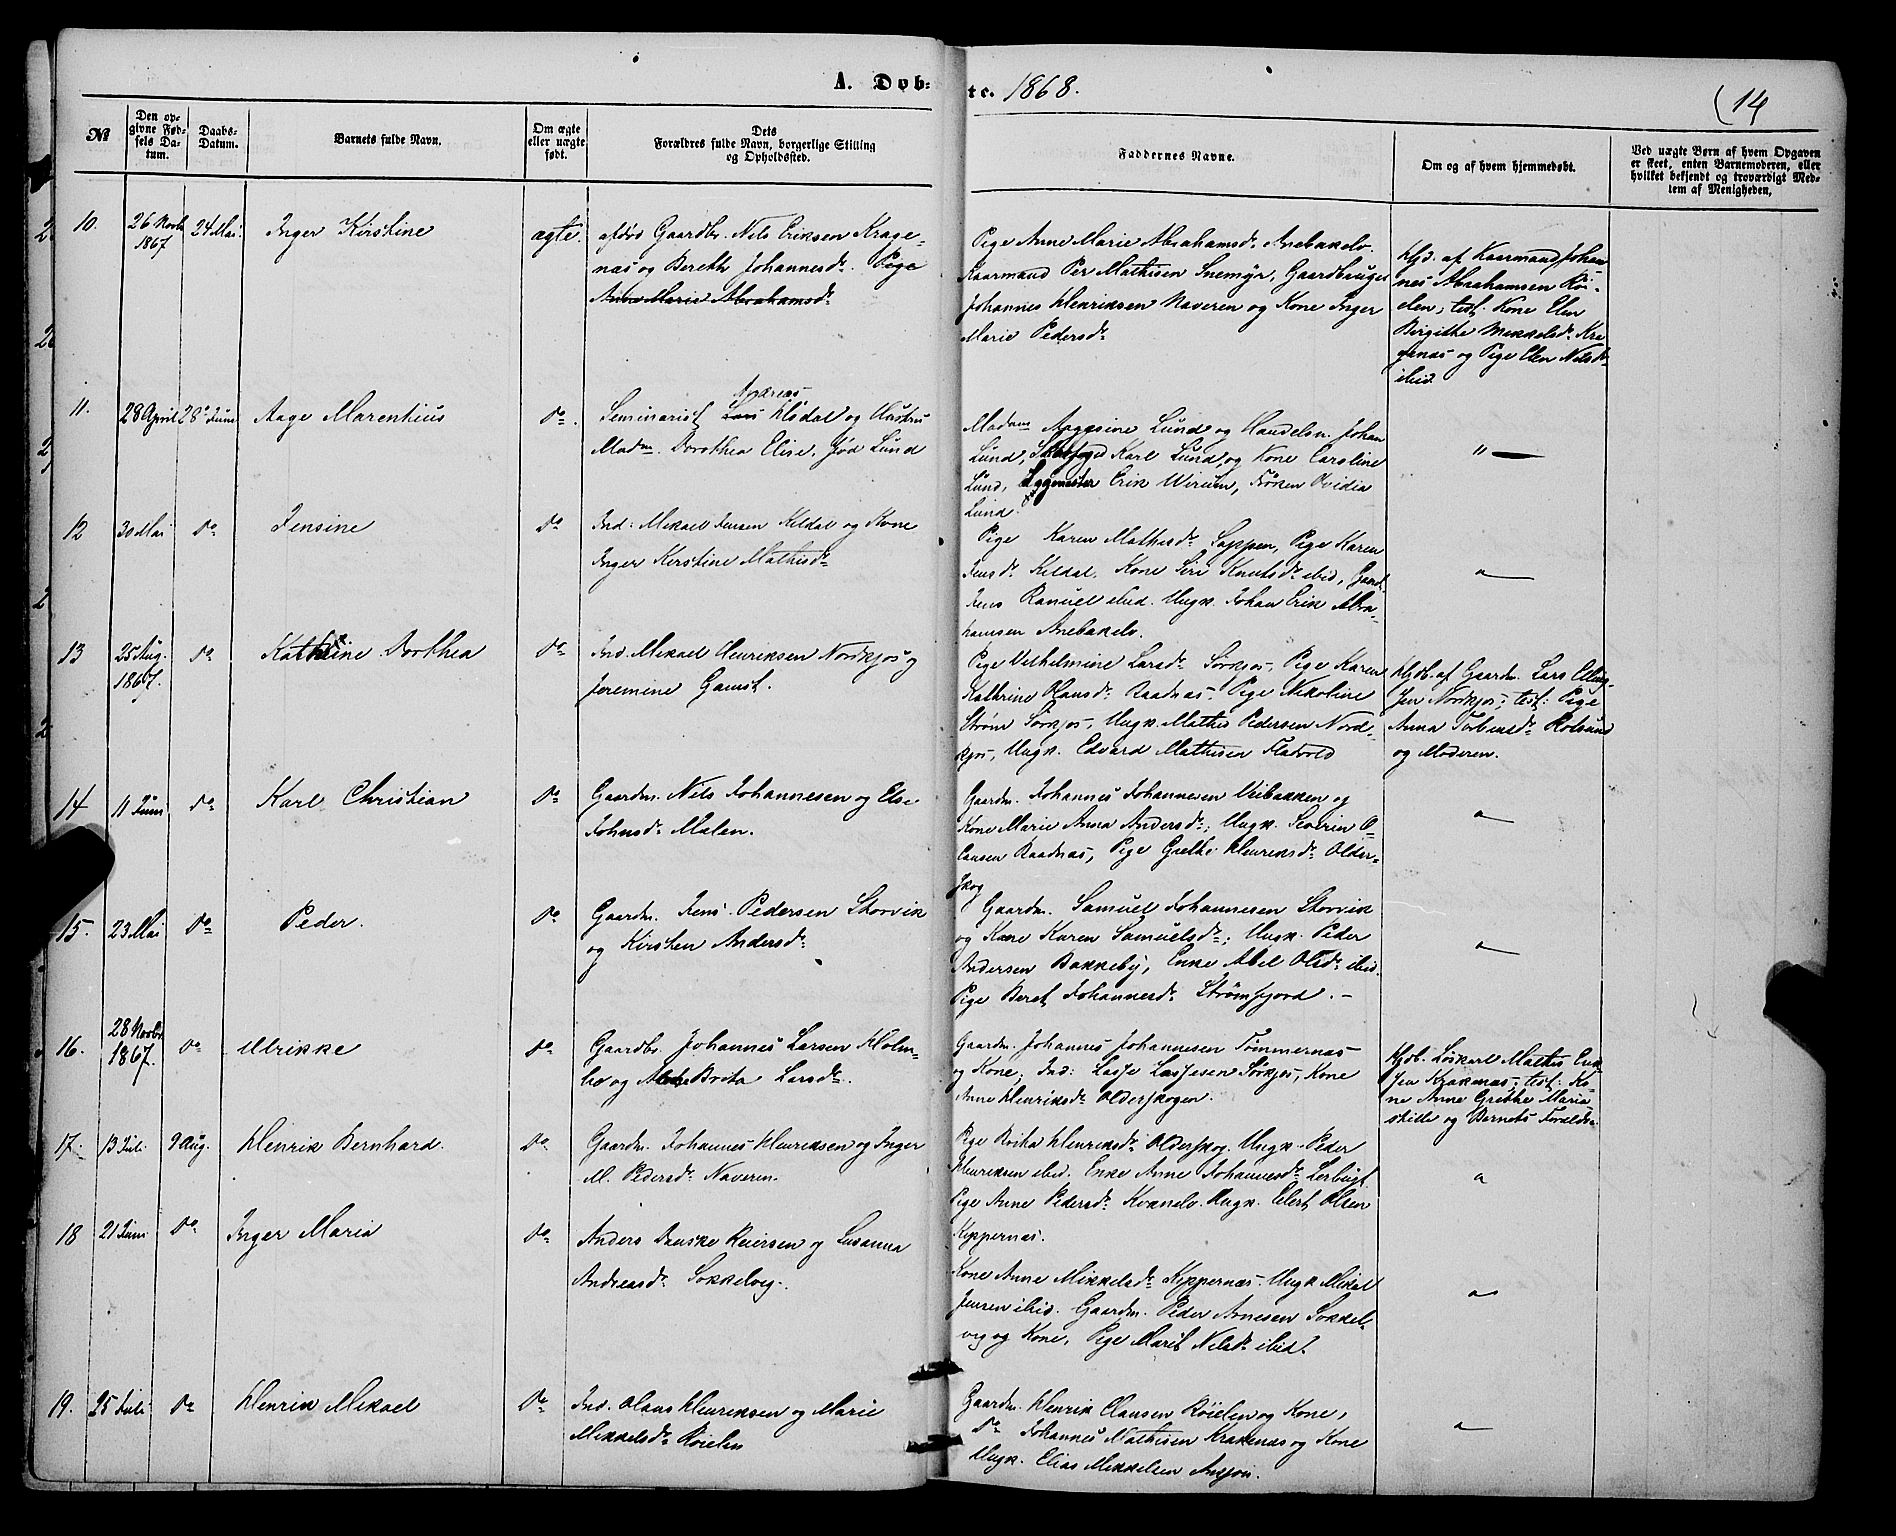 A. Døb-
te. 1868.
(14
No
Den op-
givne Fød-
sels Da-
tum.
Daabs-
Datum.
Barnets fulde Navn.
Om ægte
eller uægte
født.
Dets
Forældres fulde Navn, borgerlige Stilling
og Opholdssted.
Faddernes Navne.
Om og af hvem hjemmedøbt.
Ved uægte Børn af hvem Opgaven
er skeet, enten Barnemoderen, eller
hvilket bekjendt og troværdigt Med-
lem af Menigheden.
10.
26 Novbr
1867
24 Mai
Inger Kirstine
ægte.
afdød Gaardbr. Nils Eriksen Krage-
næs og Berethe Johannesdr. Pige
Anne Marie Abrahamsdr
Pige Anne Marie Abrahamsdr. Anebakelv.
Kaarmand Per Mathisen Snemyr, Gaardbruger
Johannes Henriksen Naveren og Kone Inger
Marie Pedersdr
Hjd. af Kaarmand Johan-
nes Abrahamsen Röi-
elen, test. Kone Elen
Birgithe Mekkelsdr Kra-
genæs og Pige Elen Nilsdr
ibid
11.
28 April
28de Juni
Aage Marentius
do.
Andreas
Seminarist Lars Usdal og Hustru
Madm. Dorothea Elise, fød Lund
Madam Aagesine Lund og Handelsm. Johan
Lund, Karl Lund og Kone Caroline
Lund, Erik Wirum, Frøken Ovidia
Lund.
"
12
30 Mai
do
Jensine
do
Ind: Mikael Jensen Kildal og Kone
Inger Kirstine Mathisdr
Pige Karen Mathisdr Sappen, Pige Karen
Jensdr Kildal. Kone Siri Knutsdr ibid, Gaard.
Jens Ranuel ibid. Ungk. Johan Erik Abra-
hamsen Anebakelv.
"
13
25 Aug.
1867.
do
Kathrine Dorthea
do
Ind. Mikael Henriksen Nordkjos og
Jeremine Gamst.
Pige Vilhelmine Larsdr Sørkjos, Pige Karen
Kathrine Hansdr Baadnæs. Pige Nikoline
Strøm Sørkjos, Ungk. Mathis Pedersen Nord-
kjos, Ungk. Edvard Mathisen Flatvold
Hjdb. af Gaardm. Lars Elling-
sen Nordkjos; test: Pige
Anna Torbensdr Rotsund
og Moderen.
14
11 Juni
do
Karl Christian
do
Gaardm. Nils Johannesen og Else
Johnsdr Malen.
Gaardm. Johannes Johannesen Uribakken og
Kone Marie Anna Andersdr; Ungk. Severin O-
lausen Baadnæs, Pige Grethe Henriksdr Older-
skog
"
15.
23 Mai
do
Peder.
do
Gaardm. Jens Pedersen Storvik
og Kirsten Andersdr
Gaardm. Samuel Johannesen Storvik
og Kone Karen Samuelsdr; Ungk. Peder
Andersen Bakkeby, Enke Abel Olsdr ibid.
Pige Beret Johannesdr Strømfjord. –
"
16.
28 Novbr
1867.
do
Ulrikke
do
Gaardbr. Johannes Larsen Holm-
bo og Brita Larsdr.
Gaardm. Johannes Johannesen Tømmernæs
og Kone; Ind: Lasse Lassesen Sørkjos, Kone
Anne Henriksdr Olderskogen.
Hjdb. Løskarl Mathis Erik-
sen Krakenæs; test: Ko-
ne Anne Grethe Maria
Hitte og Barnets Forældre
17.
13 Juli
9 Aug.
Henrik Bernhard.
do
Gaardm. Johannes Henriksen og Inger
M. Pedersdr Naveren.
Pige Brita Henriksdr Olderskog. Ungk. Peder
Henriksen ibid. Enke Anne Johannesdr Lerbugt.
Pige Anne Pedersdr Kvænelv. Ungk. Eilert Olsen
Kippernæs.
"
18
21 Juni
do
Inger Maria
do
Anders Danske Reiersen og Susanna
Andreasdr Sokkelvig.
Kone Anne Mikkelsdr Kippernæs. Ungk. Mikal
Jensen ibid. Gaardm. Peder Arnesen Sokkel-
vig og Kone, Pige Marit Nilsdr ibid.
"
19.
25 Juli
do
Henrik Mikael
do
Ind. Olaus Henriksen og Marie
Mikkelsdr Röielen
Gaardm. Henrik Clausen Röielen og Kone,
do Johannes Mathisen Krakenæs og Kone
Ungk. Elias Mikkelsen
"